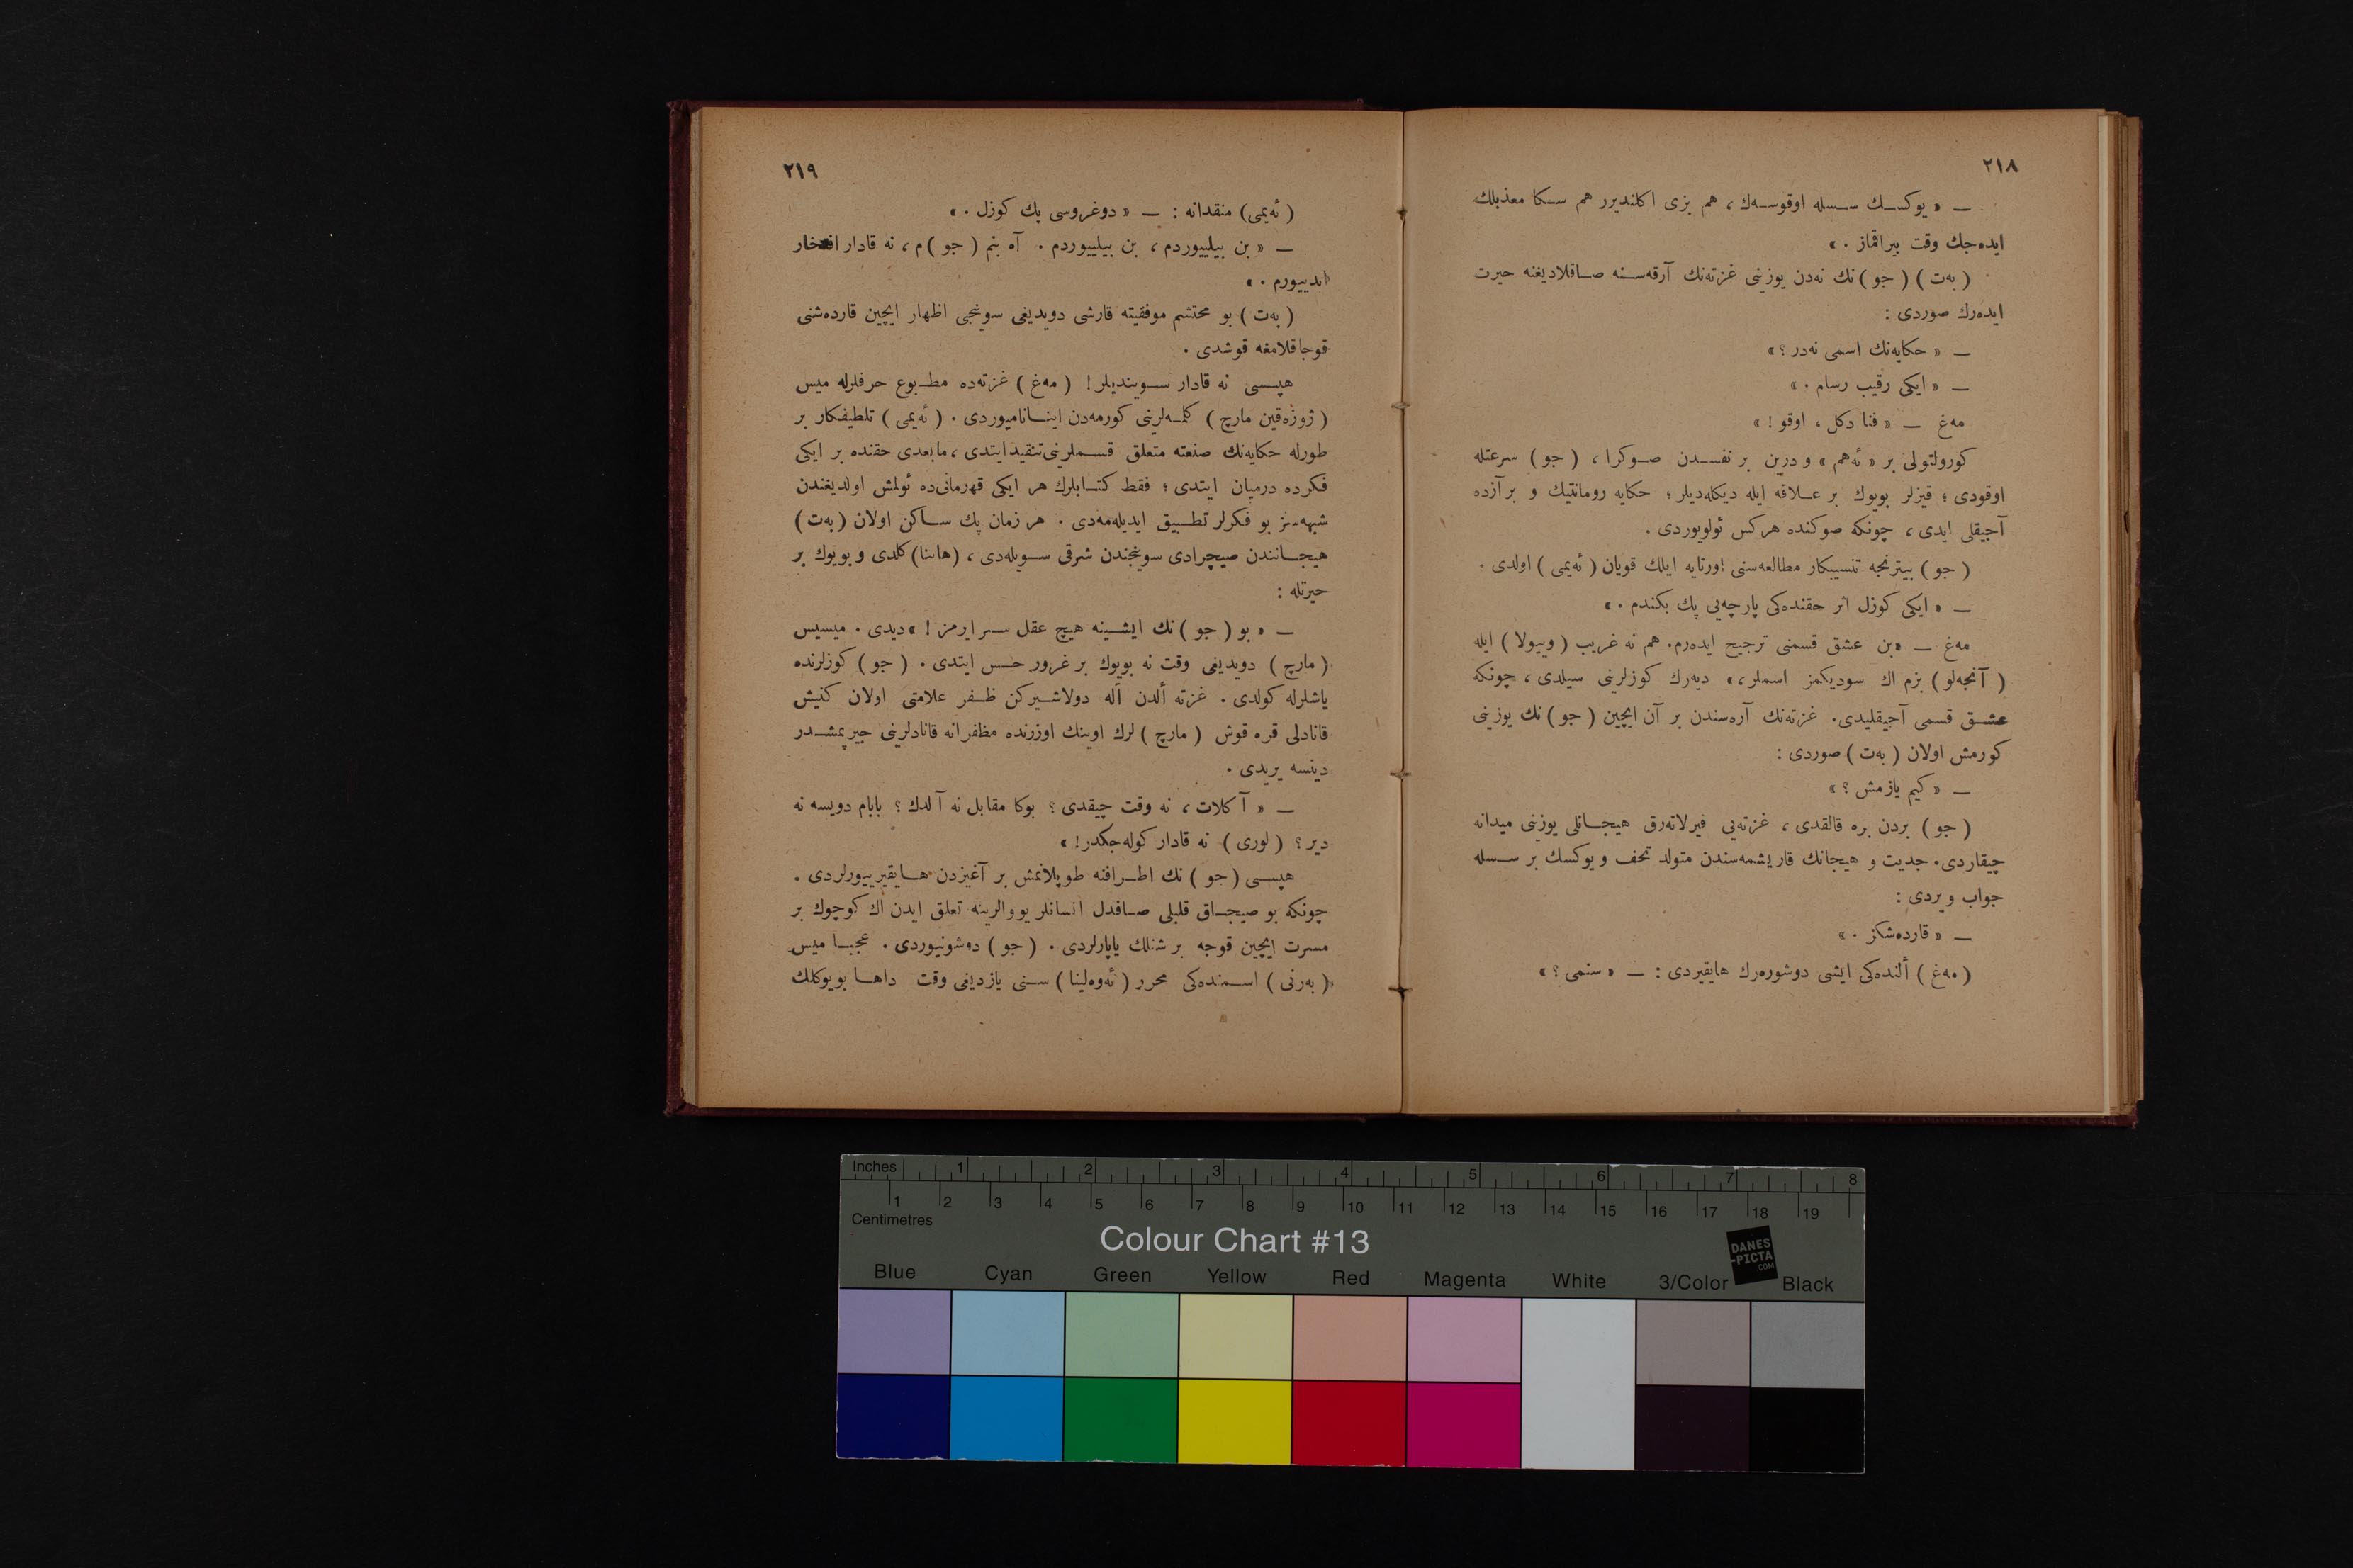 ٢١٨
— « يوكسك سسله اوقوسه‌ك ، هم بزى اكلنديرر هم سكا معذبلك
ايده‌جك وقت بيراقماز . »
( به‌ت ) ( جو ) نك نه‌دن يوزينى غزته‌نك آرقه‌سنه صاقلاديغنه حيرت
ايده‌رك صوردى :
— « حكايه‌نك اسمى نه‌در ؟ »
— « ايكى رقيب رسام . »
مه‌غ — « فنا دكل ، اوقو ! »
كورولتولى بر « ئه‌هم » و درين بر نفسدن صوكرا ، ( جو ) سرعتله
اوقودى ؛ قيزلر بويوك بر علاقه ايله ديكله‌ديلر ؛ حكايه رومانتيك و بر آزده
آجيقلى ايدى ، چونكه صوكنده هركس ئولويوردى .
( جو ) بيترنجه تنسيبكار مطالعه‌سنى اورتايه ايلك قويان ( ئه‌يمى ) اولدى .
— « ايكى كوزل اثر حقنده‌كى پارچه‌يى پك بكندم . »
مه‌غ — « بن عشق قسمنى ترجيح ايده‌رم. هم نه غريب ( وييولا ) ايله
( آنجه‌لو ) بزم اك سوديكمز اسملر، » ديه‌رك كوزلرينى سيلدى ، چونكه
عشق قسمى آجيقليدى. غزته‌نك آره‌سندن بر آن ايچين ( جو ) نك يوزينى
كورمش اولان ( به‌ت ) صوردى :
— « كيم يازمش ؟ »
( جو ) بردن بره قالقدى ، غزته‌يى فيرلاته‌رق هيجانلى يوزينى ميدانه
چيقاردى. جديت و هيجانك قاريشمه‌سندن متولد تحف و يوكسك بر سسله
جواب ويردى :
— « قارده‌شكز . »
( مه‌غ ) ألنده‌كى ايشى دوشوره‌رك هايقيردى : — « سنمى ؟ »
٢١٩
( ئه‌يمى) منقدانه : — « دوغروسى پك كوزل . »
— « بن بيلييوردم ، بن بيلييوردم . آه بنم ( جو ) م ، نه قادار افتخار
ايدييورم . »
( به‌ت ) بو محتشم موفقيته قارشى دويديغى سوينجى اظهار ايچين قارده‌شنى
قوجاقلامغه قوشدى .
هپسى نه قادار سوينديلر ! ( مه‌غ ) غزته‌ده مطبوع حرفلرله ميس
( ژوزه‌فين مارچ ) كلمه‌لرينى كورمه‌دن اينانامييوردى . ( ئه‌يمى ) تلطيفكار بر
طورله حكايه‌نك صنعته متعلق قسملرينى تنقيد ايتدى ، مابعدى حقنده بر ايكى
فكرده درميان ايتدى ؛ فقط كتابلرك هر ايكى قهرمانى‌ده ئولمش اولديغندن
شبهه‌سز بو فكرلر تطبيق ايديله‌مه‌دى . هر زمان پك ساكن اولان ( به‌ت )
هيجانندن صيچرادى سوينجندن شرقى سويله‌دى ، (هاننا) كلدى و بويوك بر
حيرتله :
— « بو ( جو ) نك ايشينه هيچ عقل سر ايرمز ! » ديدى . ميسيس
( مارچ ) دويديغى وقت نه بويوك بر غرور حس ايتدى . ( جو ) كوزلرنده
ياشلرله كولدى . غزته ألدن أله دولاشيركن ظفر علامتى اولان كنيش
قانادلى قره قوش ( مارچ ) لرك اوينك اوزرنده مظفرانه قانادلرينى چيرپمشدر
دينسه يريدى .
— « آكلات ، نه وقت چيقدى ؟ بوكا مقابل نه آلدك ؟ بابام دويسه نه
دير ؟ ( لورى ) نه قادار كوله‌جكدر ! »
هپسى ( جو ) نك اطرافنه طوپلانمش بر آغيزدن هايقيرييورلردى .
چونكه بو صيجاق قلبلى صافدل انسانلر يووالرينه تعلق ايدن اك كوچوك بر
مسرت ايچين قوجه بر شنلك ياپارلردى . ( جو ) دوشونيوردى . عجبا ميس
« ( به‌رنى ) اسمنده‌كى محرر ( ئه‌وه‌لينا ) سنى يازديغى وقت داها بويوكلك
Inches 1 2 3 4 5 6 7 8
1 2 3 4 5 6 7 8 9 10 11 12 13 14 15 16 17 18 19
Centimetres
Colour Chart #13
DANES
-PICTA
.COM
Blue Cyan Green Yellow Red Magenta White 3/Color Black